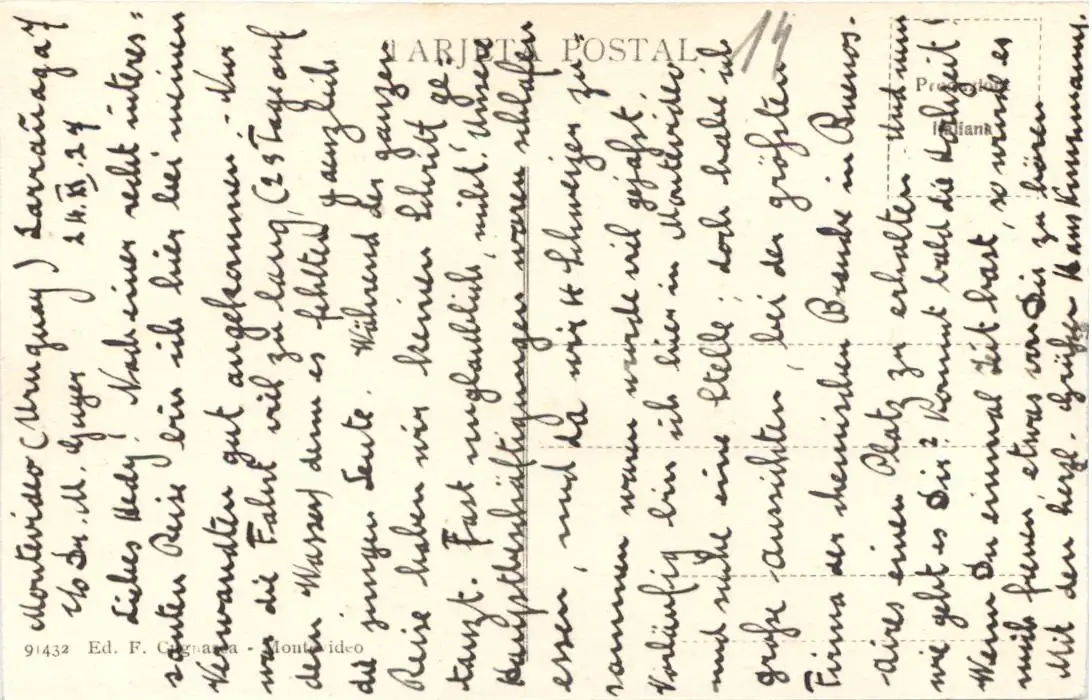 TARJETA POSTAL
14
Produzione
Italiana
91432 Ed. F. Cugnasca - Montevideo
Montevideo (Uruguay) Larrañaga 7
c/o Dr. M. Guyer 24. XI. 27
Liebes Hedy! Nach einer recht interes=
santen Reise bin ich hier bei meinen
Verwandten gut angekommen. Nur
war die Fahrt viel zu lang, (23 Tage auf
dem Wasser) denn es fehlten gänzlich
die jungen Leute. Während der ganzen
Reise haben wir keinen Schritt ge=
tanzt. Fast unglaublich, nicht! Unsere
Hauptbeschäftigungen waren schlafen
essen, und da wir 14 Schweizer zu=
sammen waren wurde viel gejasst.
Vorläufig bin ich hier in Montevideo
und suche eine Stelle; doch habe ich
große Aussichten, bei der größten
Firma der chemischen Branche in Buenos-
Aires einen Platz zu erhalten. Und nun
wie geht es Dir? Kommt bald die Hochzeit!
Wenn Du einmal Zeit hast, so würde es
mich freuen etwas von Dir zu hören
Mit den herzl. Grüßen Hans